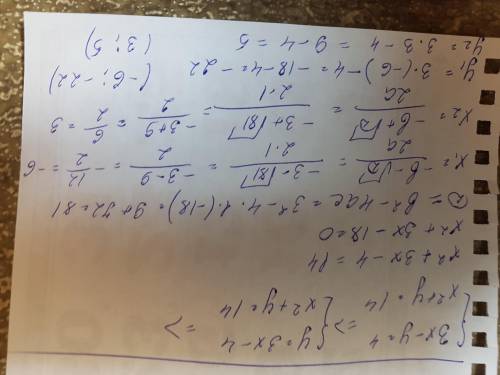 {3x-y=4 => {y=3x-4 =>
{x²+y=14 {x²+y=14
x²+3x-4=14
x²+3x-18=0
D=b²-4ac=3²-4·1·(-18)=9+72=81
x₁=(-b-√D)/2a=(-3-√81)/2·1=(-3-9)/2=-12/2=-6
x₂=(-b+√D)/2a=(-3+√81)/2·1=(-3+9)/2=6/2=3
y₁=3·(-6)-4=-18-4=-22 (-6;-22)
y₂=3·3-4=9-4=5 (3;5)